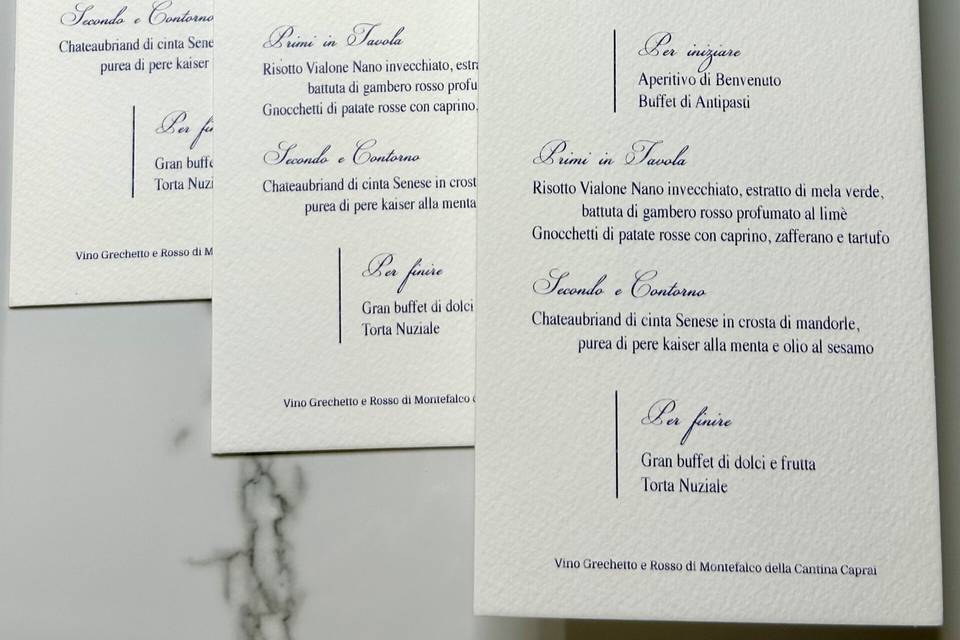 Secondo e Contorno
Chateaubriand di cinta Sene
purea di pere kaiser
Per fi
Gran buffe
Torta Nuzi
Vino Grechetto e Rosso di M
Primi in Tavola
Risotto Vialone Nano invecchiato, estr
battuta di gambero rosso profu
Gnocchetti di patate rosse con caprino,
Secondo e Contorno
Chateaubriand di cinta Senese in crost
purea di pere kaiser alla menta
Per finire
Gran buffet di dolci
Torta Nuziale
Vino Grechetto e Rosso di Montefalco
Per iniziare
Aperitivo di Benvenuto
Buffet di Antipasti
Primi in Tavola
Risotto Vialone Nano invecchiato, estratto di mela verde,
battuta di gambero rosso profumato al limè
Gnocchetti di patate rosse con caprino, zafferano e tartufo
Secondo e Contorno
Chateaubriand di cinta Senese in crosta di mandorle,
purea di pere kaiser alla menta e olio al sesamo
Per finire
Gran buffet di dolci e frutta
Torta Nuziale
Vino Grechetto e Rosso di Montefalco della Cantina Caprai